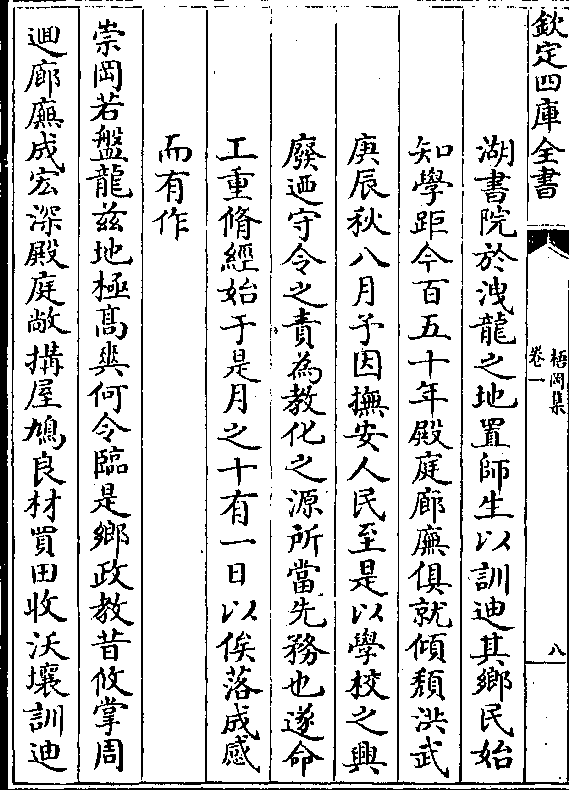 欽定四庫全書
梧岡集
卷一
八
湖書院於洩龍之地置師生以訓迪其鄉民始
知學距今百五十年殿庭廊廡俱就傾頹洪武
庚辰秋八月予因撫安人民至是以學校之興
廢迺守令之責為教化之源所當先務也遂命
工重脩經始于是月之十有一日以俟落成感
而有作
崇岡若盤龍兹地極高爽何令臨是鄉政教昔攸掌周
迴廊廡成宏深殿庭敞搆屋鳩良材買田收沃壤訓迪